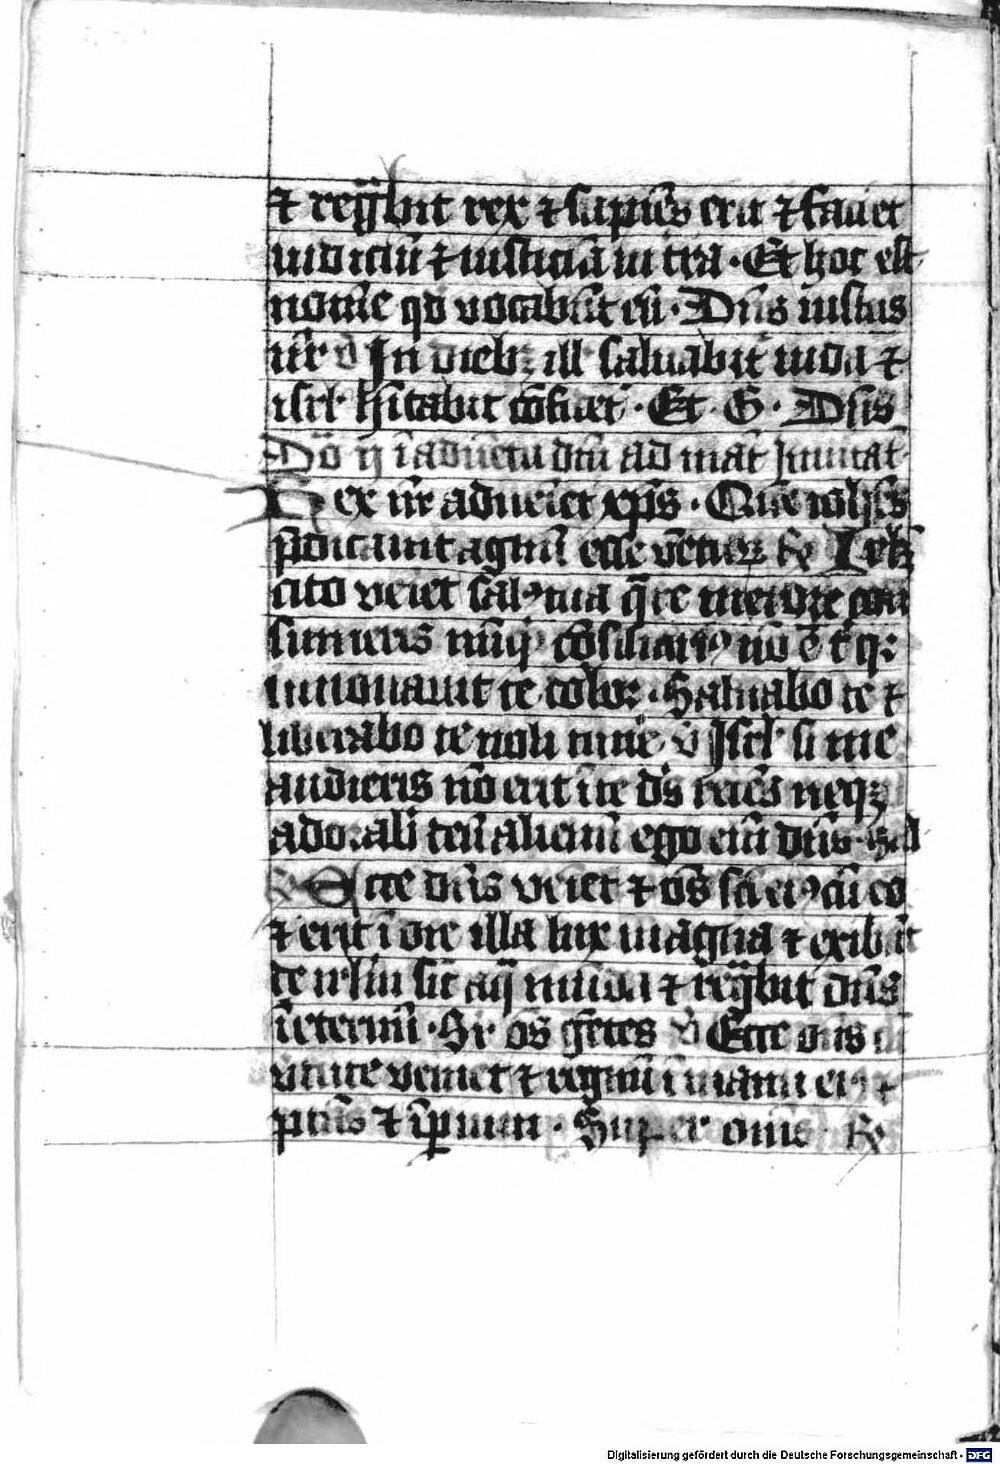 et reg̅bit rex et sapie̅s erit et faciet
iudiciu̅ et iusticia̅ in t̅ra · Et hoc est
nome̅ qd̅ vocabu̅t eu̅ · Dn̅s iustus
nr̅ v̅ In dieb; ill̅ saluabit̅ iuda et
isrl̅ h̅itabit co̅fident̅ · Et · G · Dsis
Do̅ ij i̅ adue̅tu dn̅i ad mat̅ Inuitat̅
Rex nr̅ adueniet xp̅s · Que̅ ioh̅es
p̅dicauit agnu̅ esse ve̅tur̅ R̅ Ierl̅
cito veiet sal⁹ tua q̅re merore con
sumeris nu̅q̅d co̅siliari⁹ no̅ e̅ t̅ q;
innouauit te dolor · Saluabo te et
liberabo te noli time̅ v̅ Isrl̅ si me
audieris no̅ erit i̅ te d̅s rece̅s neq;
adorab̅ deu̅ alienu̅ ego eni̅ dn̅s ·
R̅ Ecce dn̅s veiet et o̅s sc̅i ei⁹ cu̅ eo
et erit i̅ die illa lux magna et exibu̅t
de irl̅m sic̅ aq̅ mu̅da et reg̅bit dn̅s
i̅ eternu̅ · Sr̅ o̅s ge̅tes v̅ Ecce dn̅s cu̅
v̅tute veniet et regnu̅ i̅ manu ei⁹ et
ptas̅ et i̅periu̅ · Super om̅s · R̅
Digitalisierung gefördert durch die Deutsche Forschungsgemeinschaft - DFG